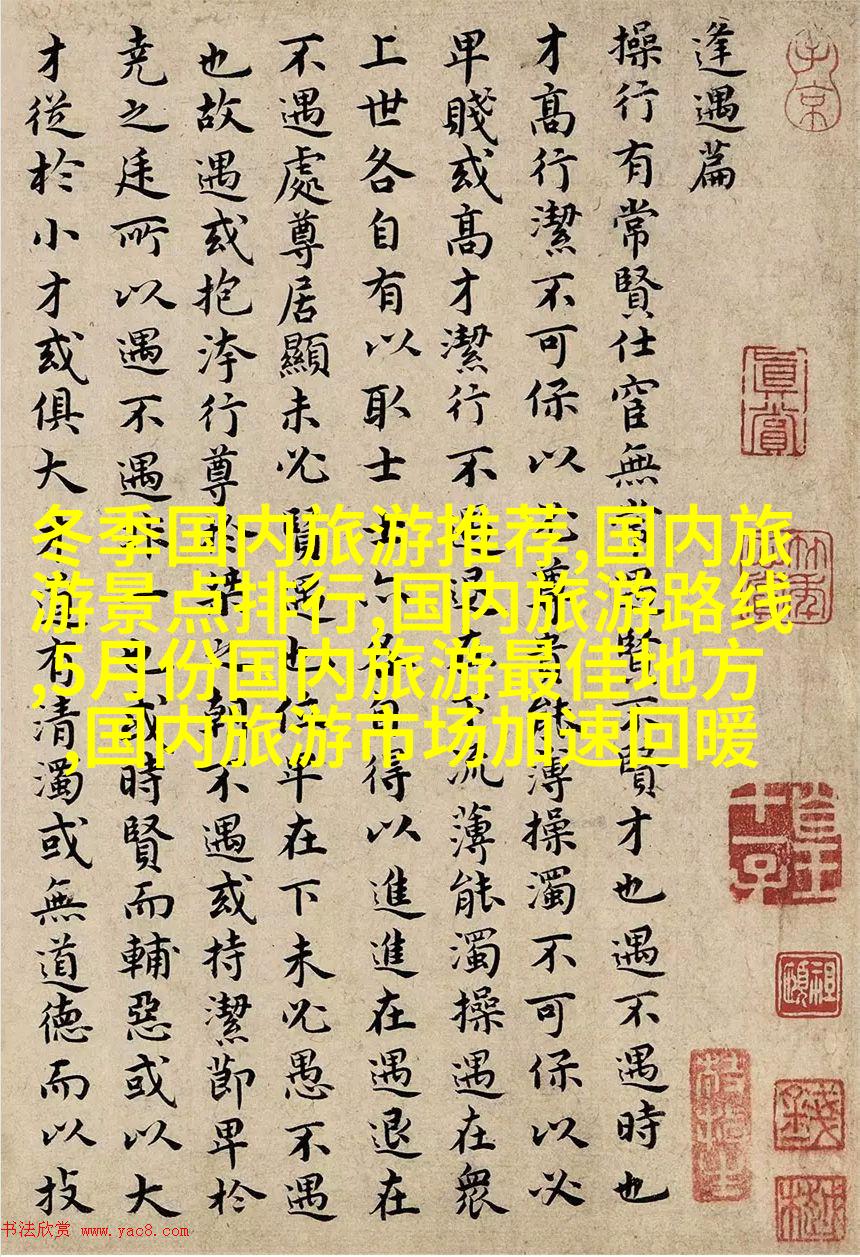 逢遇篇
操行有常賢仕宦無常遇賢不賢才也遇不遇時也
才高行潔不可保以必尊貴能薄操濁不可保以必
卑賤或高才潔行不遇退在下流薄能濁操遇在衆
上世各自有以取士士亦各自得以進進在遇退在
不遇處尊居顯未必賢遇也位卑在下未必愚不遇
也故遇或抱洿行尊於桀之朝不遇或持潔節卑於
堯之廷所以遇不遇非一也或時賢而輔惡或以大
才從於小才或俱大才道有清濁或無道德而以技
子京
真賞
冬季国内旅游推荐,国内旅
游景点排行,国内旅游路线
,5月份国内旅游最佳地方
,国内旅游市场加速回暖
书法欣赏 www.yac8.com